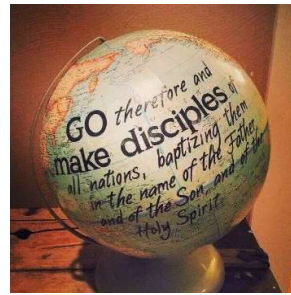 GO therefore and
make disciples of
all nations, baptizing them
in the name of the Father
and of the Son, and of the
Holy Spirit